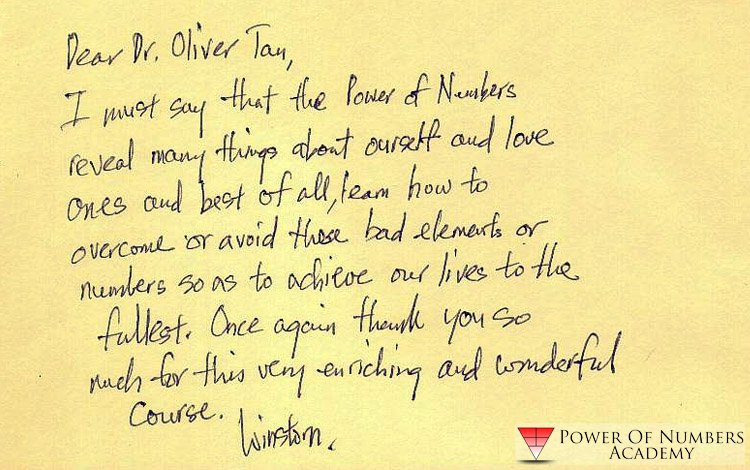 Dear Dr. Oliver Tan,
I must say that the Power of Numbers
reveal many things about ourself and love
ones and best of all, learn how to
overcome or avoid those bad elements or
numbers so as to achieve our lives to the
fullest. Once again thank you so
much for this very enriching and wonderful
course.
Winston.
POWER OF NUMBERS
ACADEMY